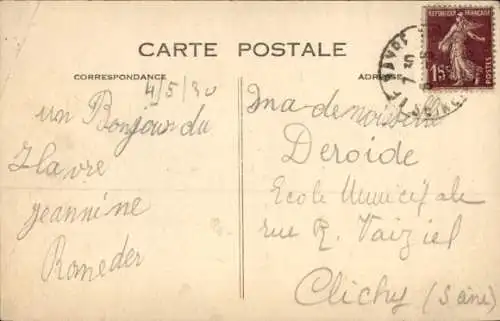 CARTE POSTALE
CORRESPONDANCE
ADRESSE
REPUBLIQUE FRANÇAISE
15c
POSTES
LE HAVRE
4/5/30
un Bonjour du
Havre
Jeannine
Ma-demoiselle
Deroide
Ecole Municipale
rue R.
Clichy (Seine)